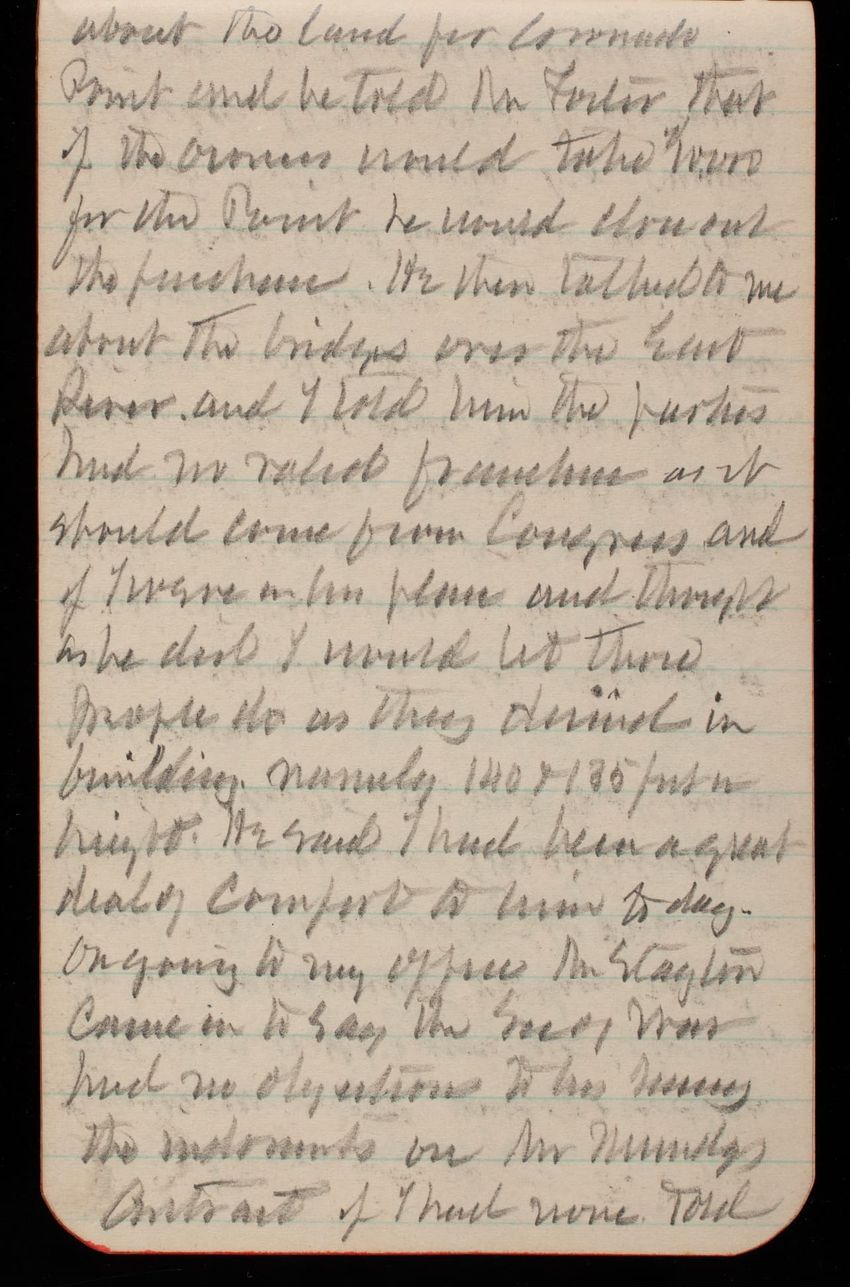 about the land for Coronado
Point and he told Mr Foster that
if the owners would take
for the Point he would close out
the purchase. He then talked to me
about the bridges over the East
River. and I told him the parties
had no valid franchise as it
should come from Congress and
if I were in his place and thought
as he did I would let those
people do as they desired in
building. namely 140 & 135 feet in
height. He said I had been a great
deal of comfort to him to day.
On going to my office Mr Stayton
came in to say the Secy War
had no objections to his
the indorsments on Mr Mundys
Contract if I had none. Told